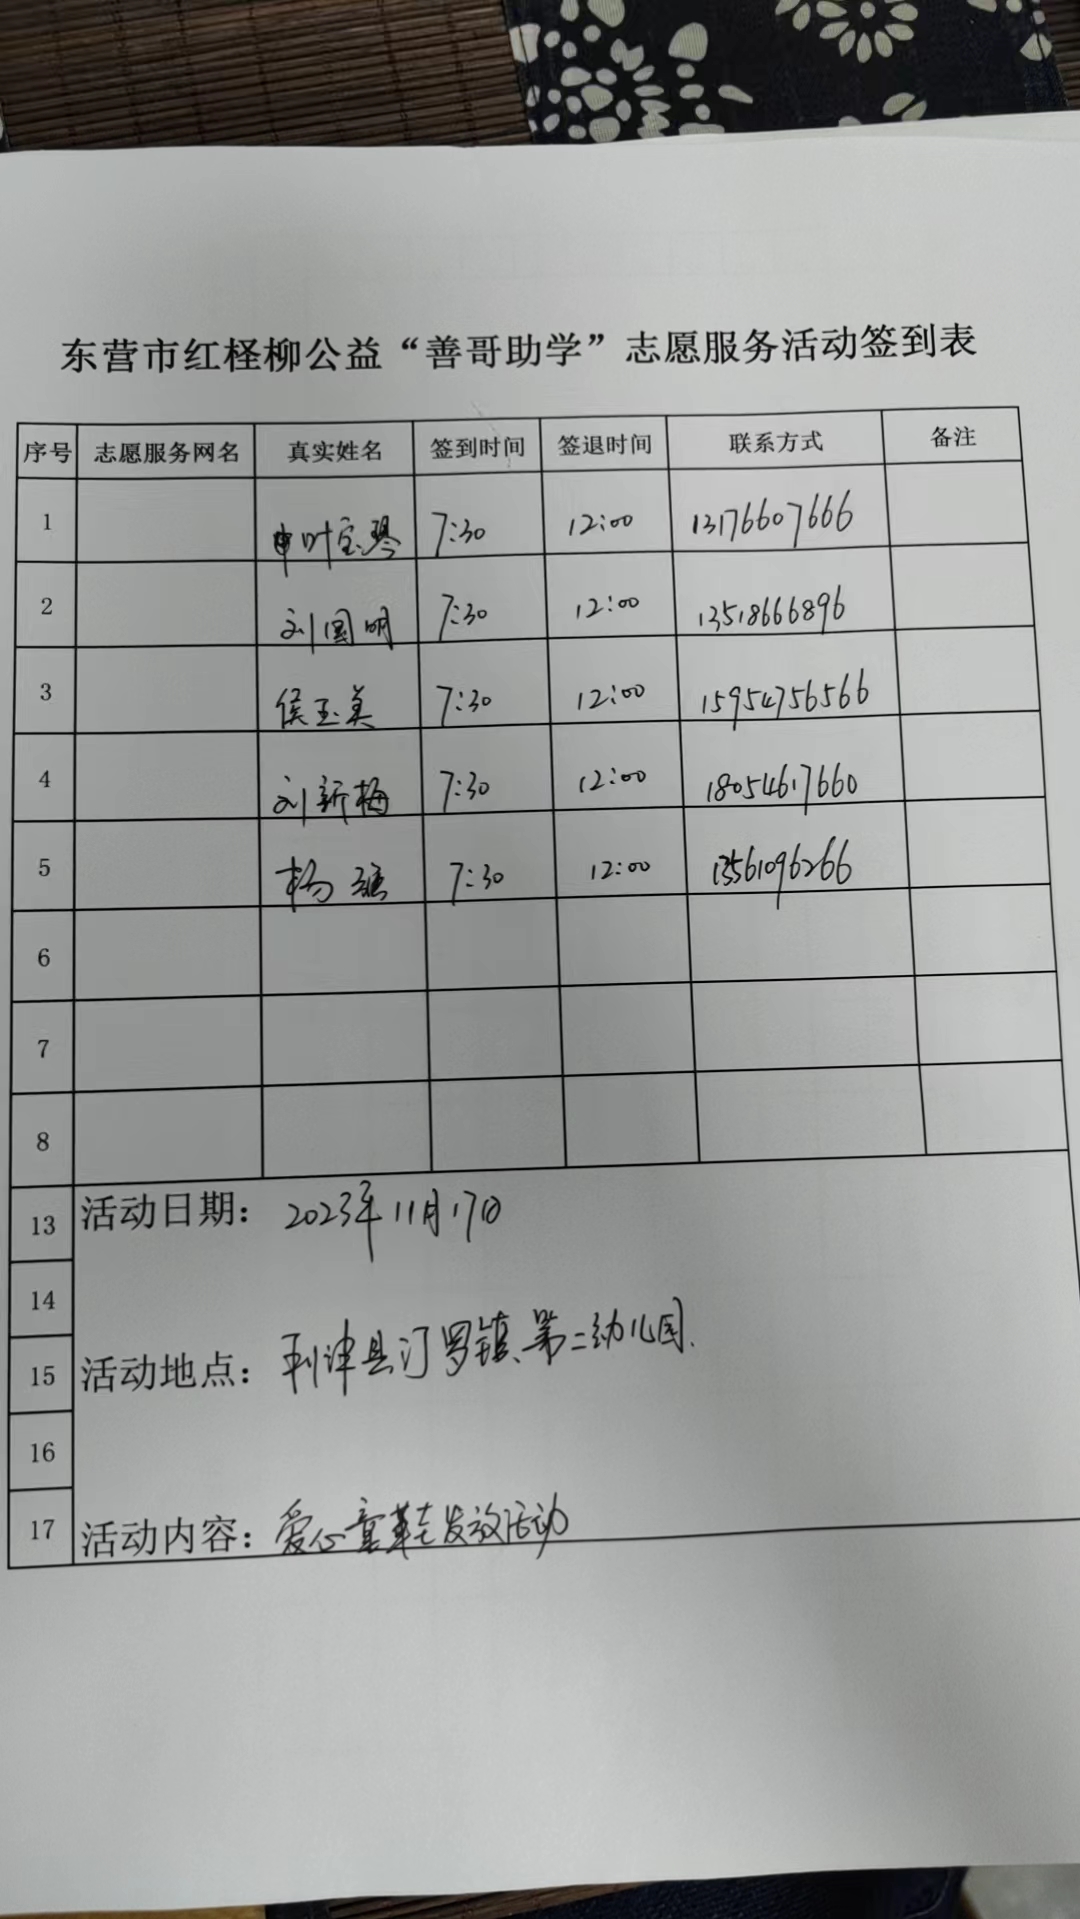 东营市红柽柳公益“善哥助学”志愿服务活动签到表
序号 志愿服务网名 真实姓名 签到时间 签退时间 联系方式 备注
1 叶宝琴 7:30 12:00 13176607666
2 刘国明 7:30 12:00 13518666896
3 侯玉美 7:30 12:00 15954756566
4 刘新梅 7:30 12:00 18054617660
5 杨 7:30 12:00 13561096266
6
7
8
13 活动日期: 2023年11月17日
14
15 活动地点: 利津县汀罗镇第二幼儿园.
16
17 活动内容: 爱心童鞋发放活动